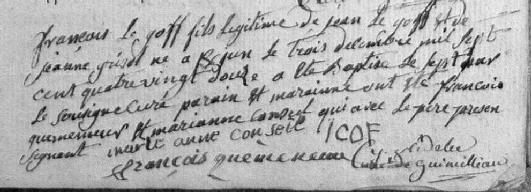 francois Le goff fils Legitime de jean Le goff et de
jeanne ne a Bejun Le Trois decembre mil sept
cent quatrevingt douze a ete Baptise Le sept par
Le sousigné Curé parain et maraine ont ete francois
quemeneur et marianne Conseil qui avec Le pere presen
signant marie anne Conseil
françois quèmèneur Curé de guimilliau